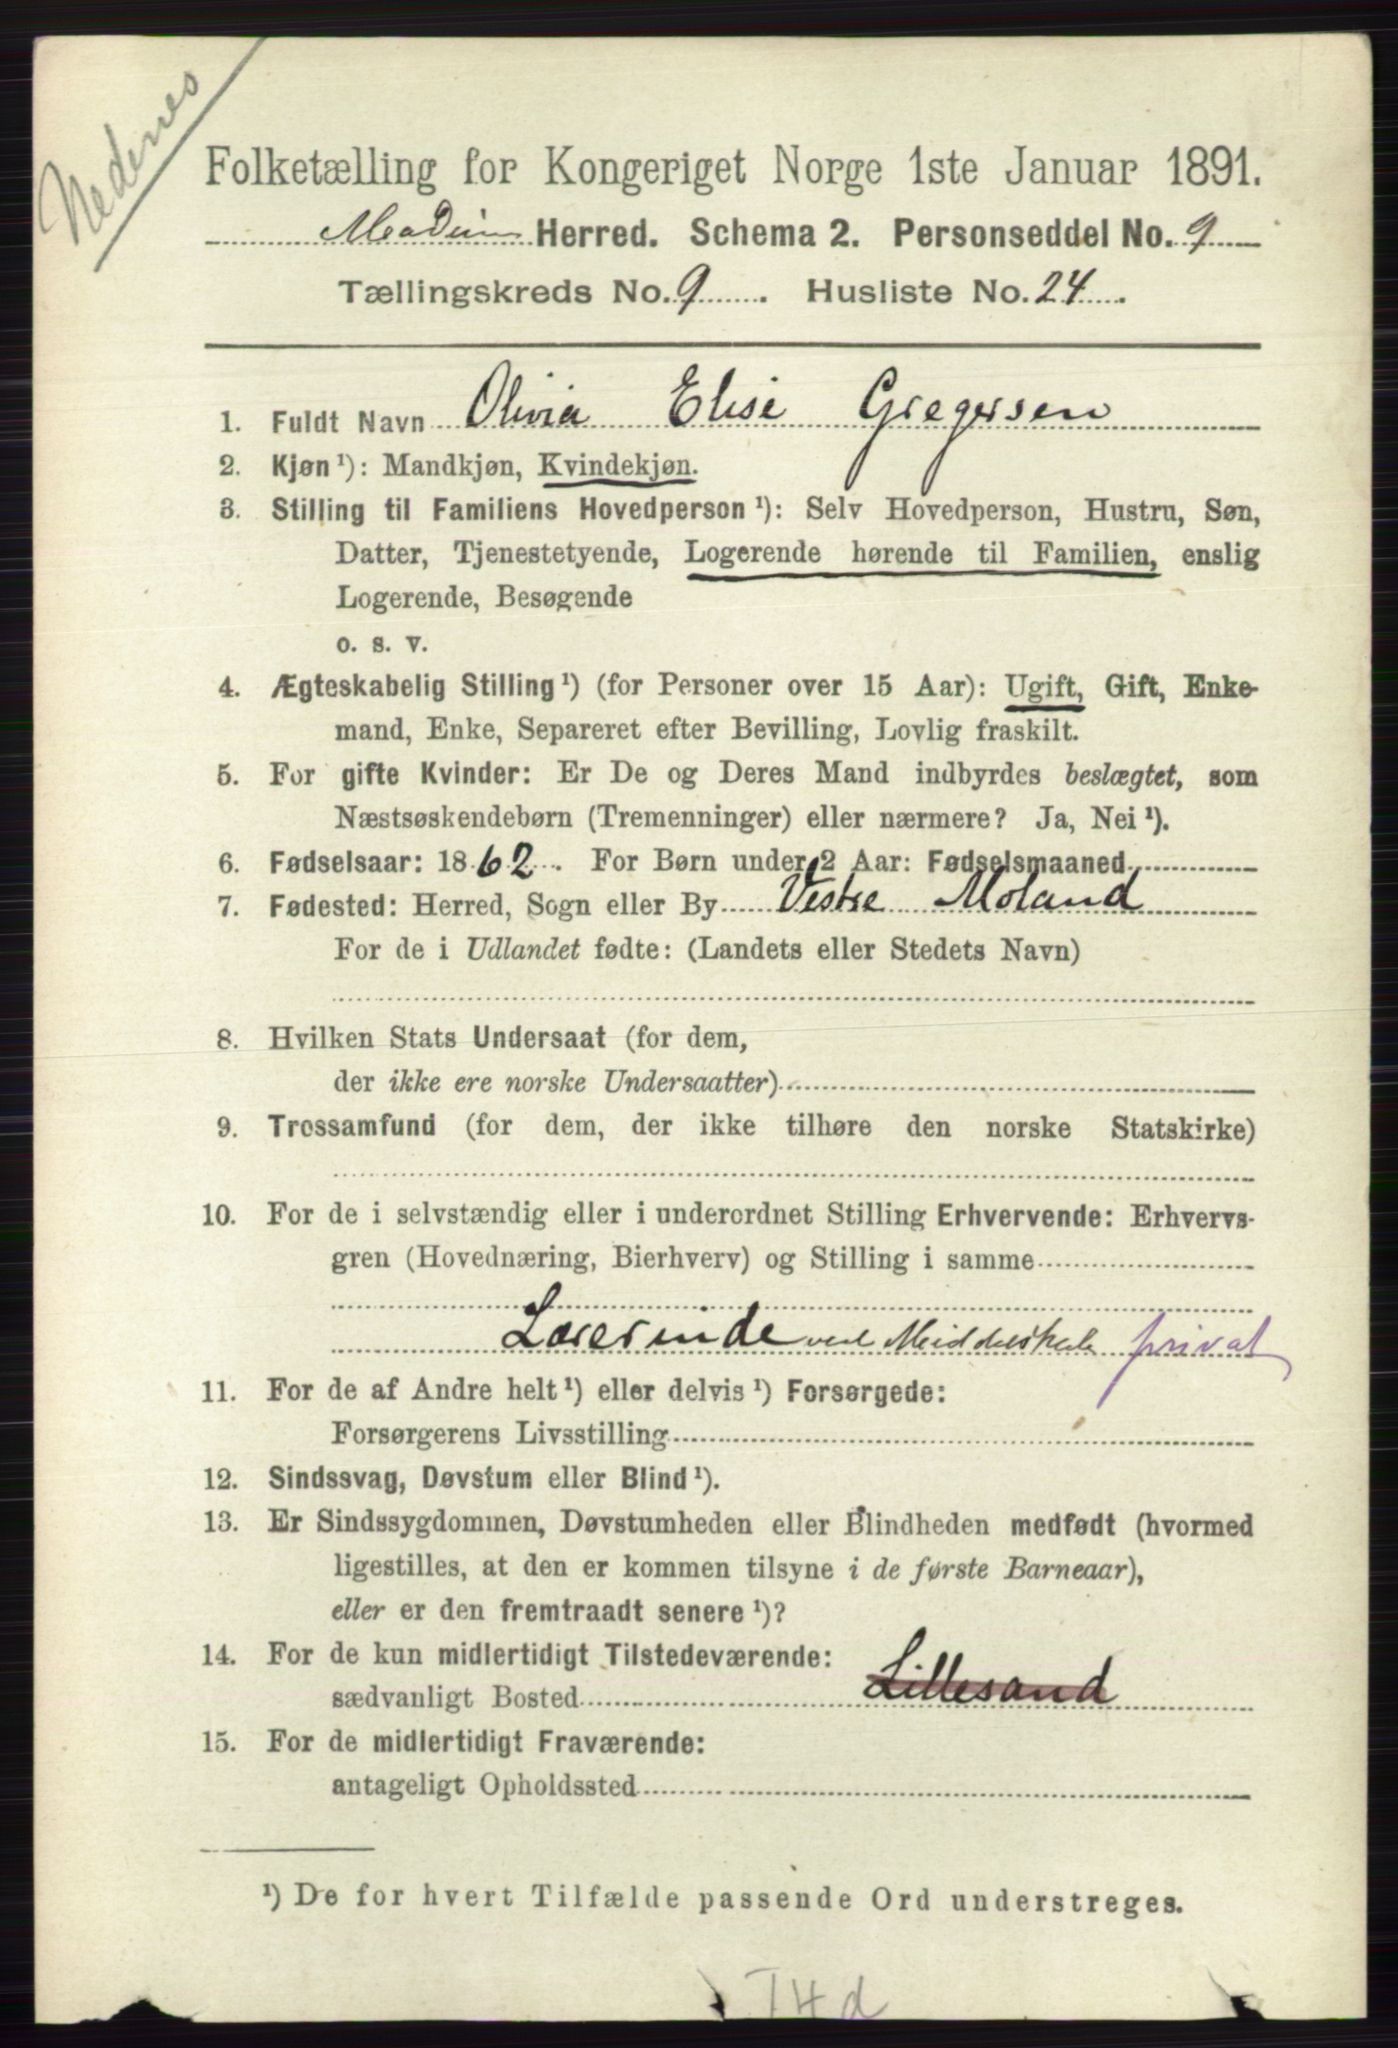 Nedenes
Folketælling for Kongeriget Norge 1ste Januar 1891.
Herred. Schema 2. Personseddel No. 9
Tællingskreds No. 9. Husliste No. 24.
1. Fuldt Navn Olivia Elise Gregersen
2. Kjøn ¹): Mandkjøn, Kvindekjøn.
3. Stilling til Familiens Hovedperson ¹): Selv Hovedperson, Hustru, Søn,
Datter, Tjenestetyende, Logerende hørende til Familien, enslig
Logerende, Besøgende
o. s. v.
4. Ægteskabelig Stilling ¹) (for Personer over 15 Aar): Ugift, Gift, Enke-
mand, Enke, Separeret efter Bevilling, Lovlig fraskilt.
5. For gifte Kvinder: Er De og Deres Mand indbyrdes beslægtet, som
Næstsøskendebørn (Tremenninger) eller nærmere? Ja, Nei ¹).
6. Fødselsaar: 1862. For Børn under 2 Aar: Fødselsmaaned
7. Fødested: Herred, Sogn eller By Vestre Moland
For de i Udlandet fødte: (Landets eller Stedets Navn)
8. Hvilken Stats Undersaat (for dem,
der ikke ere norske Undersaatter)
9. Trossamfund (for dem, der ikke tilhøre den norske Statskirke)
10. For de i selvstændig eller i underordnet Stilling Erhvervende: Erhvervs-
gren (Hovednæring, Bierhverv) og Stilling i samme
Lærerinde ved Middelskole privat
11. For de af Andre helt ¹) eller delvis ¹) Forsørgede:
Forsørgerens Livsstilling
12. Sindssvag, Døvstum eller Blind ¹).
13. Er Sindssygdommen, Døvstumheden eller Blindheden medfødt (hvormed
ligestilles, at den er kommen tilsyne i de første Barneaar),
eller er den fremtraadt senere ¹)?
14. For de kun midlertidigt Tilstedeværende:
sædvanligt Bosted Lillesand
15. For de midlertidigt Fraværende:
antageligt Opholdssted
¹) De for hvert Tilfælde passende Ord understreges.
T4d